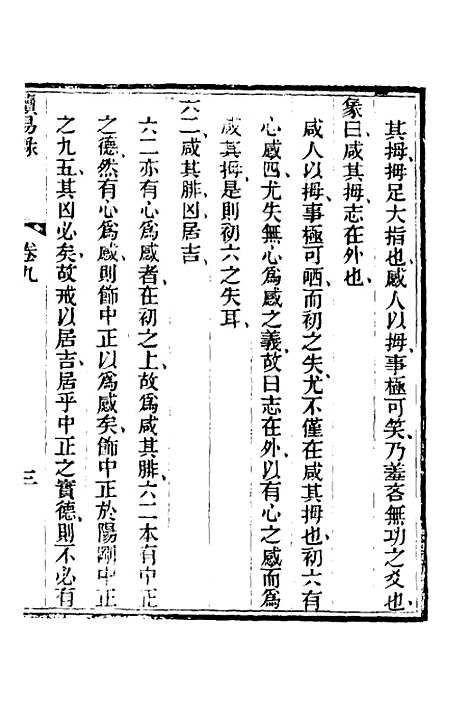 其拇拇足大指也感人以拇事極可笑乃羞吝無功之爻也
象曰咸其拇志在外也
咸人以拇事極可哂而初之失尤不僅在咸其拇也初六有
心感四尤失無心為感之義故曰志在外以有心之感而為
咸其拇是則初六之失耳
六二咸其腓凶居吉
六二亦有心為感者在初之上故為咸其腓六二本有中正
之德然有心為感則飾中正以為感矣飾中正於陽剛中正
之九五其凶必矣故戒以居吉居乎中正之實德則不必有
讀易錄
卷九
三